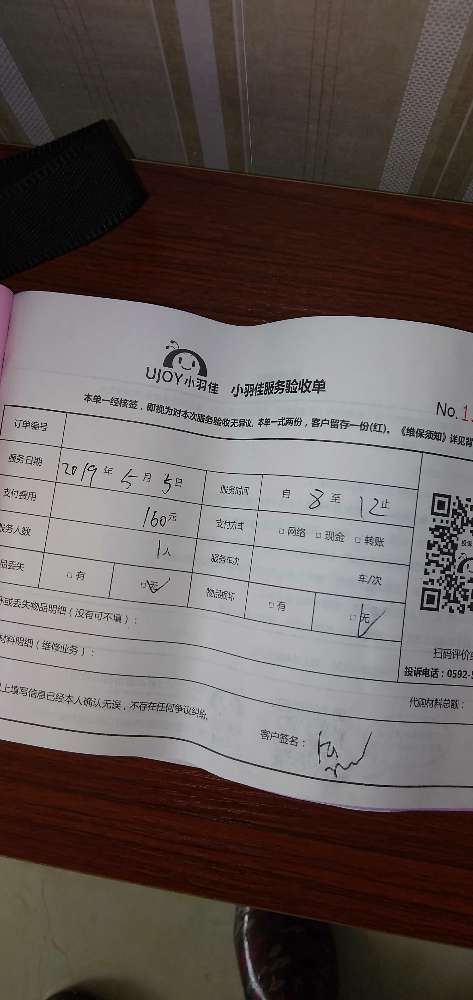 UJOY小羽佳 小羽佳服务验收单
No.1
本单一经核签，即视为对本次服务验收无异议。本单一式两份，客户留存一份(红)。《维保须知》详见背
订单编号
服务日期 2019 年 5 月 5 日 服务时间 自 8 至 12 止
支付费用 160 元 支付方式 □网络 □现金 □转账
服务人数 1 人 服务车次 车/次
品丢失 □有 □无 物品损坏 □有 □无
坏或丢失物品明细（没有可不填）：
材料明细（维修业务）：
扫码评价
投诉电话：0592-5
代购材料总额：
上填写信息已经本人确认无误，不存在任何争议纠纷。
客户签名：